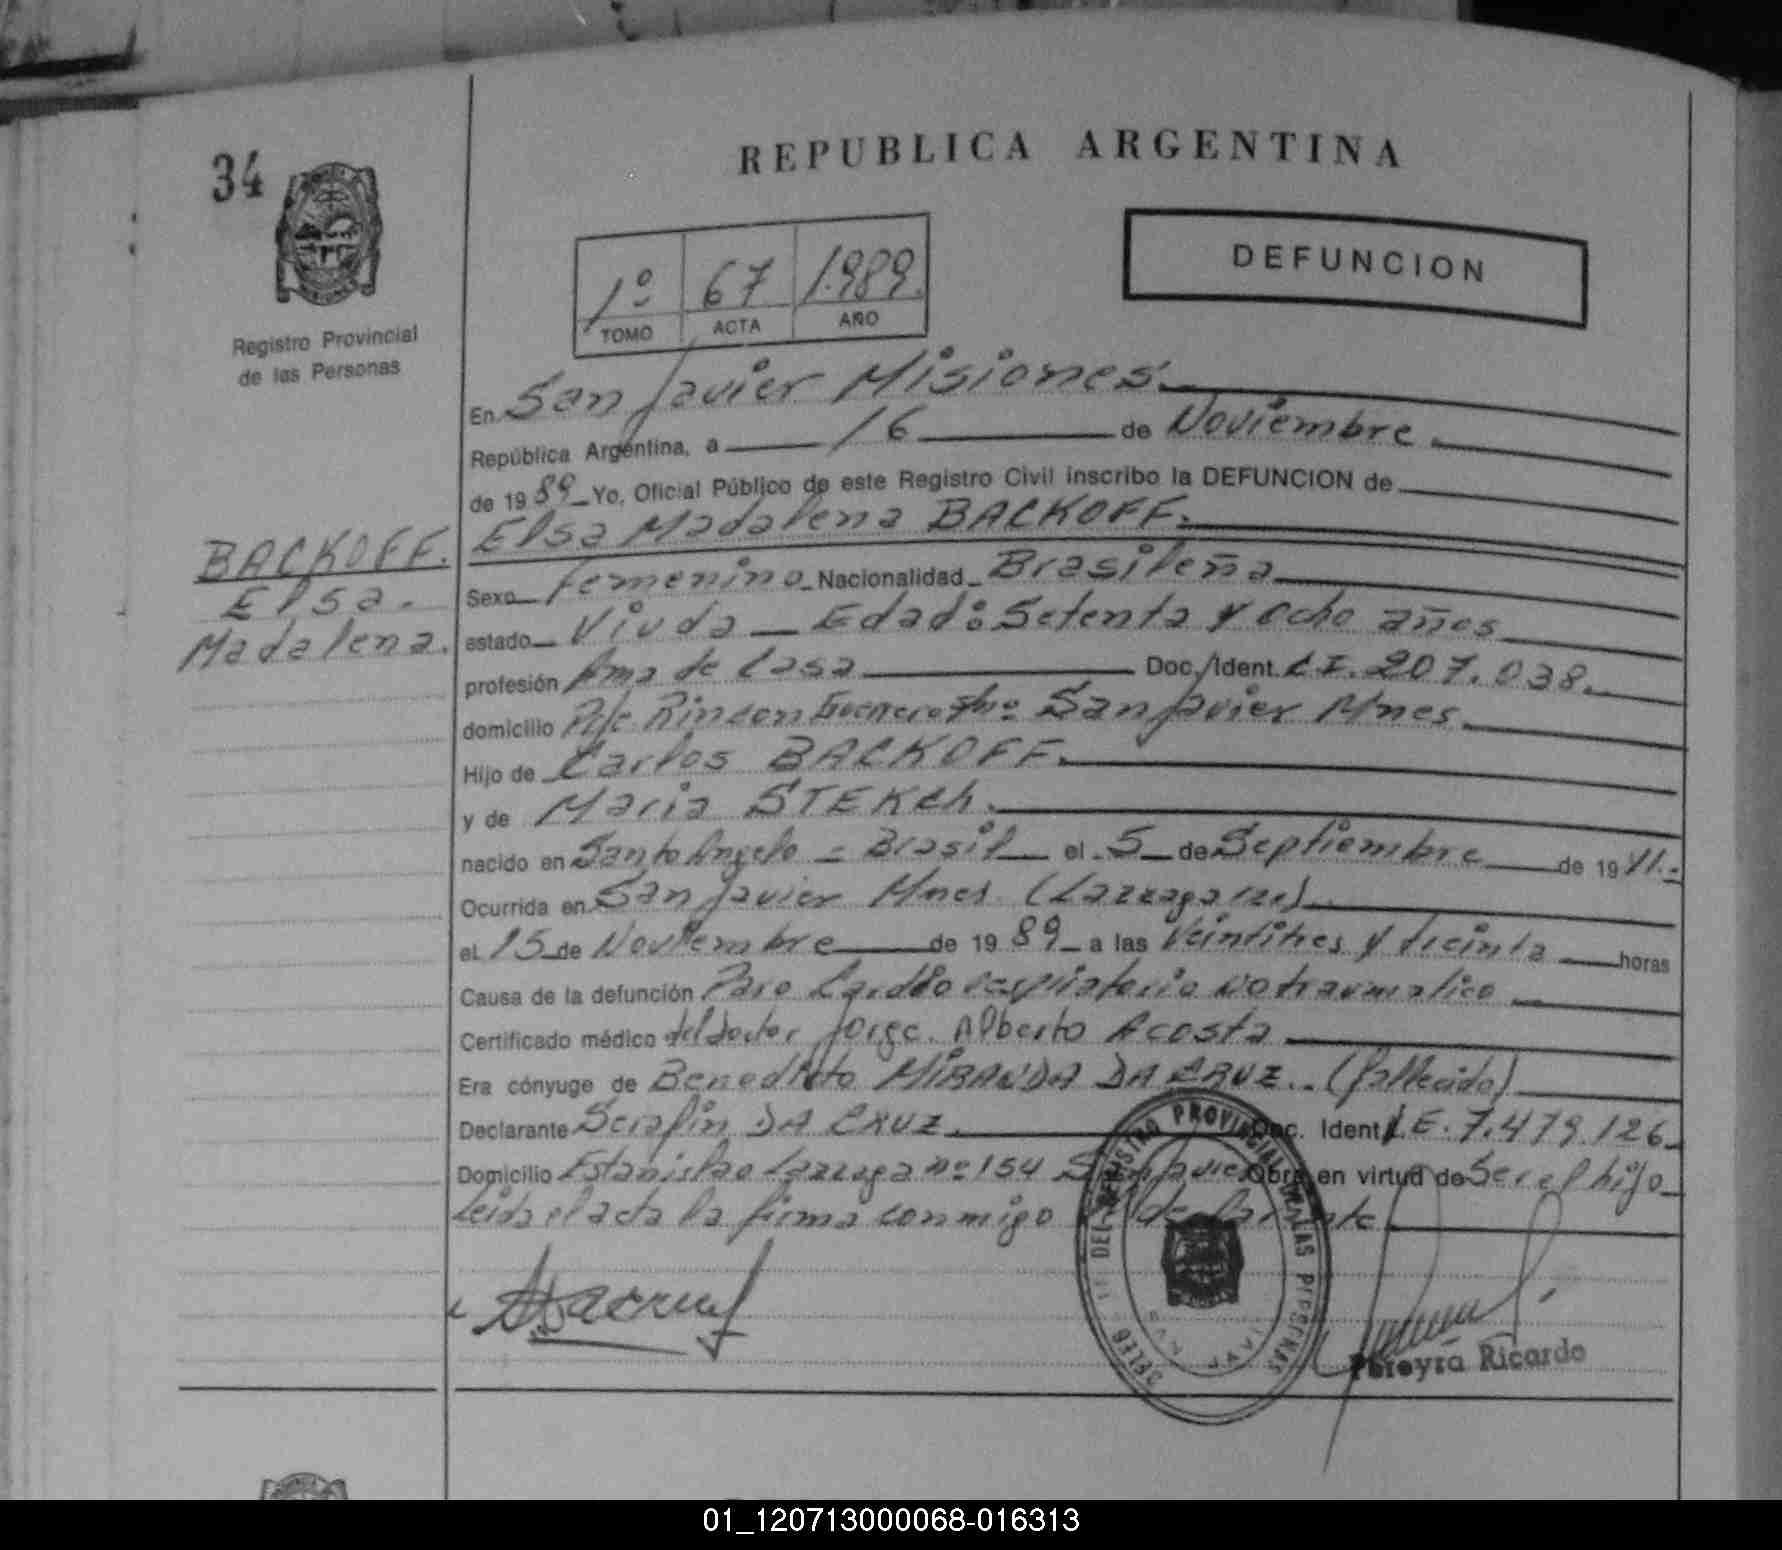 REPUBLICA ARGENTINA
34
Registro Provincial
de las Personas
1º 67 1.989.
TOMO ACTA AÑO
DEFUNCION
En San Javier Misiones.
República Argentina, a 16 de Noviembre.
de 1989 Yo, Oficial Público de este Registro Civil inscribo la DEFUNCION de
Elsa Madalena BACKOFF.
BACKOFF.
Elsa.
Madalena.
Sexo femenino Nacionalidad Brasileña
estado Viuda Edad: Setenta y ocho años
profesión Ama de Casa Doc./Ident. C.I. 207.038.
domicilio Pje Rincon San Javier Mnes.
Hijo de Carlos BACKOFF.
y de Maria STEKch.
nacido en Santo Angelo - Brasil el 5 de Septiembre de 1911.-
Ocurrida en San Javier Mnes.
el 15 de Noviembre de 1989 a las Veintitres y treinta horas
Causa de la defunción Paro Cardio respiratorio no traumatico
Certificado médico del doctor Jorge. Alberto Acosta
Era cónyuge de Benedicto MIRANDA DA CRUZ.. (fallecido)
Declarante Serafin DA CRUZ. Doc. Ident L.E. 7.479.126
Domicilio Estanislao nº 154 San Javier Obra en virtud de Ser el hijo
Leida el acta la firma conmigo el declarante
DEL REGISTRO PROVINCIAL DE LAS PERSONAS
SAN JAVIER
Pereyra Ricardo
01_120713000068-016313